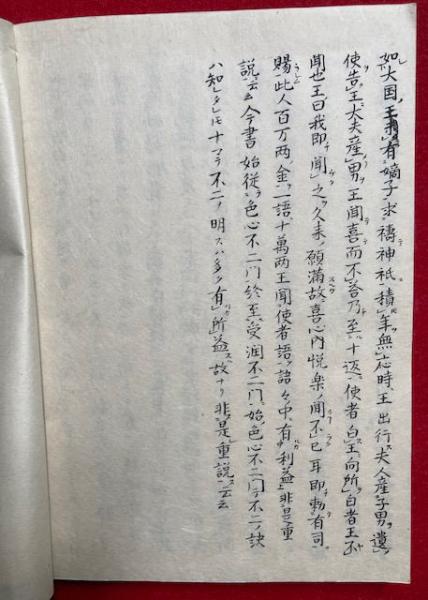 如大国王有嫡子求祷神祇積年無応時王出行夫人産子男遣
使告王大夫産男王聞喜而不荅乃至十返使者白王向所白者王不
聞也王曰我即聞之久来願満故喜心内悦楽聞不已耳即勅有司
賜此人百万両金一語十萬両王聞使者語語々中有利益非是重
説云云今書始従色心不二門終至受潤不二門始色心不二門不二ノ訣
ハ知レタレトモ十マテ不二ノ明スハ多ク有所益故ナリ非是重説云云